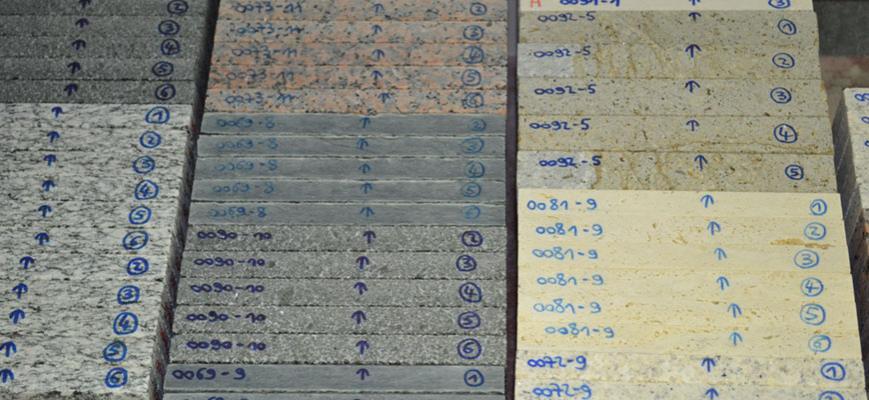 ↑ ②
↑ ③
↑ ④
↑ ⑤
↑ ⑥
↑ ①
↑ ②
↑ ③
↑ ④
↑ ⑤
↑ ⑥
↑ ②
↑ ③
↑ ④
↑ ⑤
↑ ⑥
0073-11 ↑ ②
0073-11 ↑ ③
0073-11 ↑ ④
0073-11 ↑ ⑤
0073-11 ↑ ⑥
0069-8 ↑ ②
0069-8 ↑ ③
0069-8 ↑ ④
0069-8 ↑ ⑤
0069-8 ↑ ⑥
0090-10 ↑ ②
0090-10 ↑ ③
0090-10 ↑ ④
0090-10 ↑ ⑤
0090-10 ↑ ⑥
0069-9 ↑ ①
↑ ③
0092-5 ↑ ①
0092-5 ↑ ②
0092-5 ↑ ③
0092-5 ↑ ④
0092-5 ↑ ⑤
0081-9 ↑ ①
0081-9 ↑ ②
0081-9 ↑ ③
0081-9 ↑ ④
0081-9 ↑ ⑤
0081-9 ↑ ⑥
0072-9 ↑ ①
0072-9 ↑